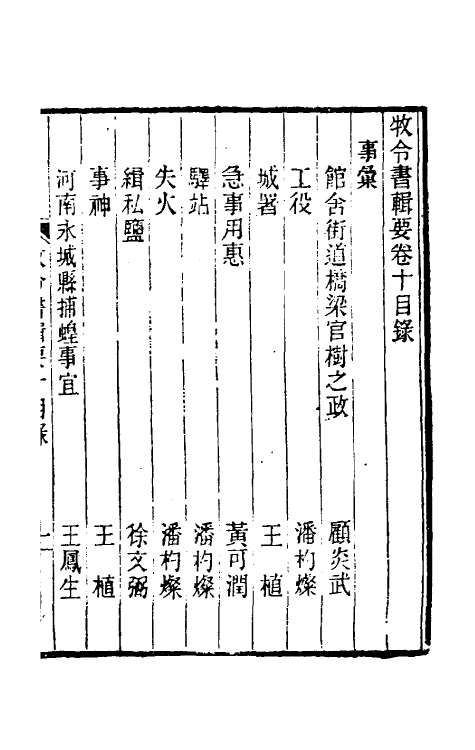 牧令書輯要卷十目錄
事彙
館舍街道橋梁官樹之政　顧炎武
工役　潘杓燦
城署　王植
急事用惠　黃可潤
驛站　潘杓燦
失火　潘杓燦
緝私鹽　徐文弼
事神　王植
河南永城縣捕蝗事宜　王鳳生
牧令書輯要十目錄　一